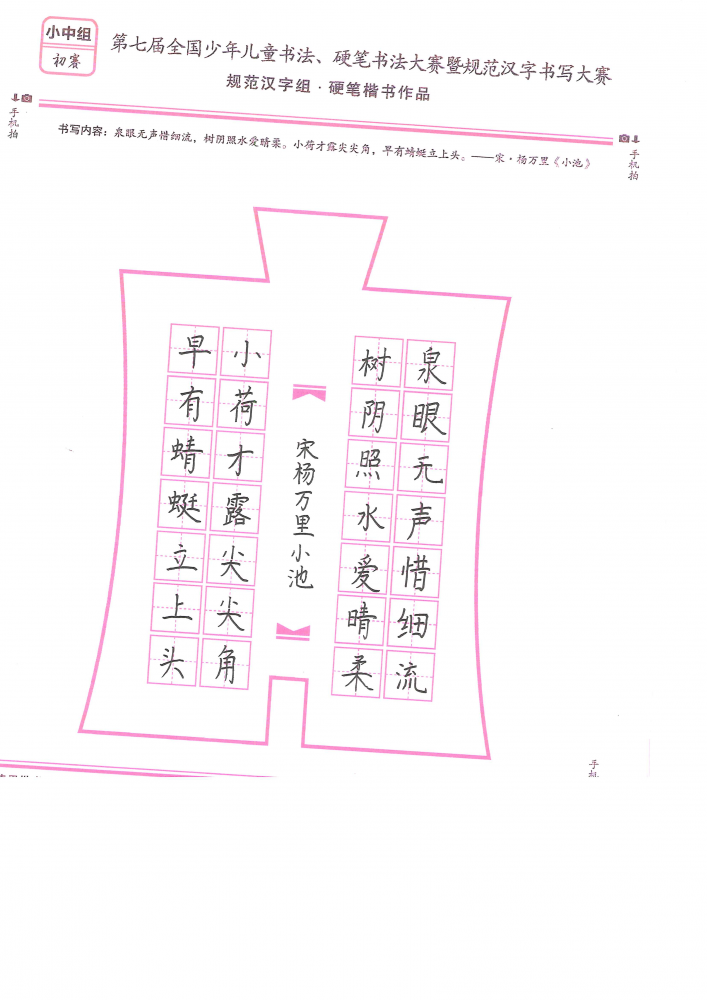 小中组
初赛
第七届全国少年儿童书法、硬笔书法大赛暨规范汉字书写大赛
规范汉字组·硬笔楷书作品
手机拍
手机拍
书写内容：泉眼无声惜细流，树阴照水爱晴柔。小荷才露尖尖角，早有蜻蜓立上头。——宋·杨万里《小池》
泉眼无声惜细流
树阴照水爱晴柔
宋杨万里小池
小荷才露尖尖角
早有蜻蜓立上头
手机